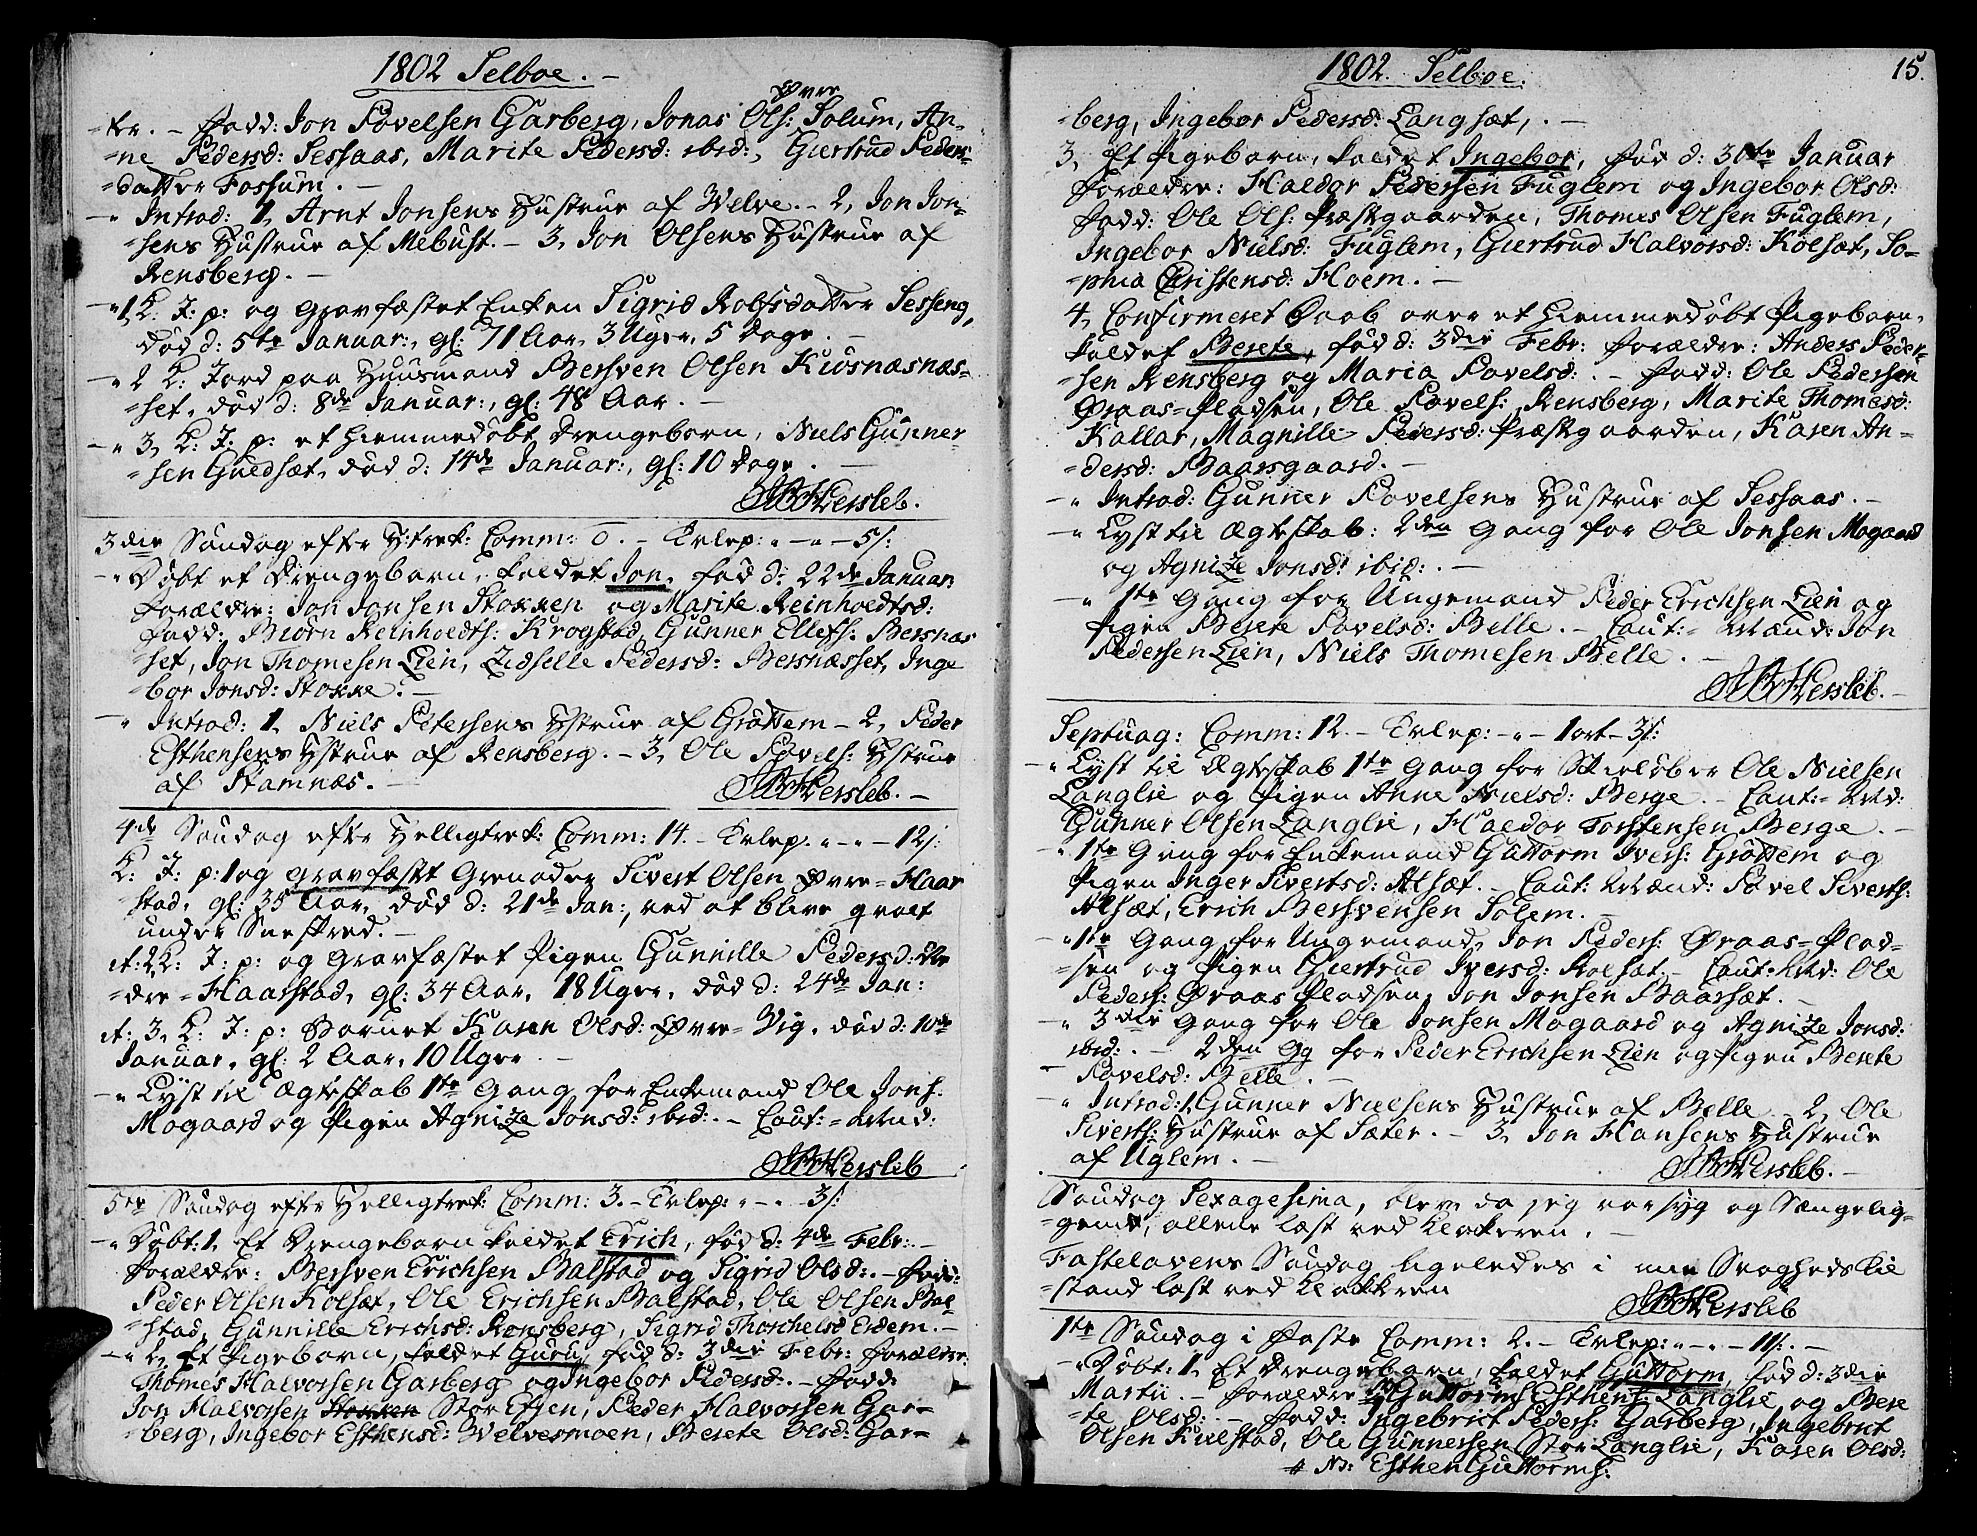 1802 Selboe. –
Øvre
=ter. – Fadd: Jon Povelsen Garberg, Jonas Ols: Solum, An-
=ne Pedersd: Sessaas, Marite Pedersd: ibid:, Giertrud Peders-
=datter Fossum. –
–" Introd: 1, Arnt Jonsens Hustrue af Welve. – 2, Jon Jon-
=sens Hustrue af Mebust. – 3, Jon Olsens Hustrue af
Rensberg. –
–"1, K: J: p: og Gravfæstet Enken Sigrid Rolfsdatter Sesseng,
død d: 5te Januar:, gl: 71 Aar, 3 Uger, 5 Dage. –
–" 2 K: Jord paa Huusmand Bersven Olsen Kiosnæsnæs-
=set, død d: 8de Januar:, gl: 48 Aar. –
–" 3, K: J: p: et hiemmedøbt Drengebarn, Niels Gunner-
=sen Guldsæt, død d: 14de Januar:, gl: 10 Dage. –
Hersleb.
3die Søndag efter H:trek: Comm: 0. – Tvlep: " – " – 5 s:
–" Døbt et Drengebarn, kaldet Jon, fød d: 22de Januar
Forældre: Jon Jonsen Stokken og Marite Reinholdtsd:
Fadd: Biørn Reinholdts: Krogstad, Gunner Ellefs: Bersnæs
set, Jon Thomesen Lien, Zidselle Pedersd: Bersnæsset, Inge
=bor Jonsd: Stokke. –
–" Introd: 1, Niels Petersens Hstrue af Grøttem – 2, Peder
Esthensens Hstrue af Rensberg. – 3, Ole Povels: Hstrue
af Stamnæs. –
Hersleb. –
4de Søndag efter Helligtrek: Comm: 14. – Tvlep: " – " – 12 s:
K: J: p: 1 og gravfæstet Grenader Sivert Olsen Øvre=Haar
stad, gl: 35 Aar, død d: 21de Jan:, ved at blive qvalt
under Sneskred. –
it: 2 K: J: p: og Gravfæstet Pigen Gunnille Pedersd:
=dre=Haarstad, gl: 34 Aar, 18 Uger, død d: 24de Jan:
it: 3, K: J: p: Barnet Karen Olsd: Øvre=Vig, død d: 10de
Januar, gl: 2 Aar, 10 Uger. –
–" Lyst til Ægteskab 1te Gang for Enkemand Ole Jons:
Mogaard og Pigen Agnitze Jonsd: ibid:. – Caut:=Mænd:
Hersleb
5te Søndag efter Helligtrek: Comm: 3. – Tvlep: " – " 3 s:
–" Døbt: 1, Et Drengebarn kaldet Erich, fød d: 4de Febr: –
Forældre: Bersven Erichsen Balstad og Sigrid Olsd:. – Fadd:
Peder Olsen Kolsæt, Ole Erichsen Balstad, Ole Olsen Bal-
=stad, Gunnille Erichsd: Rensberg, Sigrid Thorchelsd Evdem. –
–" 2, Et Pigebarn, kaldet Guru, fød d: 3die Febr: Forældre:
Thomes Halvorsen Garberg og Ingebor Pedersd: – Fadd:
Jon Halvorsen Stokken Stor Evjen, Peder Halvorsen Gar=
=berg, Ingebor Esthensd: Welvesmoen, Berete Olsd: Gar=
1802. Selboe.
15.
=berg, Ingebor Pedersd: Langsæt, . –
3, Et Pigebarn, kaldet Ingebor, fød d: 30te Januar
Forældre: Haldor Pedersen Fuglem og Ingebor Olsd:
Fadd: Ole Ols: Præstgaarden, Thomes Olsen Fuglem,
Ingebor Nielsd: Fuglem, Giertrud Halvorsd: Kolsæt, So-
=phia Christensd: Hoem. –
4, Confirmeret Daab over et hiemmedøbt Pigebarn,
kaldet Berete, fød d: 3die Febr: Forældre: Anders Peder-
=sen Rensberg og Maria Povelsd: . – Fadd: Ole Pedersen
Øraas=Pladsen, Ole Povels: Rensberg, Marite Thomesd:
Kallar, Magnille Pedersd: Præstgaarden, Karen An-
=dersd: Baarsgaard. –
–" Introd: Gunner Povelsens Hustrue af Sessaas. –
–" Lyst til Ægteskab: 2den Gang for Ole Jonsen Mogaard
og Agnitze Jonsd: ibid: . –
–" 1te Gang for Ungemand Peder Erichsen Lien og
Pigen Berete Povelsd: Belle. – Caut:=Mænd: Jon
Pedersen Lien, Niels Thomesen Belle. –
Hersleb. –
Septuag: Comm: 12. – Tvlep: – " – 1 ort – 3 s:
–" Lyst til Ægteskab 1te Gang for Skieløber Ole Nielsen
Langlie og Pigen Anne Nielsd: Berge. – Caut:=Md:
Gunner Olsen Langlie, Haldor Torstensen Berge. –
–" 1te Gang for Enkemand Guttorm Ivers: Grøttem og
Pigen Inger Sivertsd: Alsæt. – Caut: Mænd: Povel Siverts:
Alsæt, Erich Bersvensen Solem. –
–" 1te Gang for Ungemand Jon Peders: Øraas=Plad-
=sen og Pigen Giertrud Iversd: Rolsæt. – Caut: Md: Ole
Peders: Øraas Pladsen, Jon Jonsen Baarsæt. –
–" 3die Gang for Ole Jonsen Mogaard og Agnitze Jonsd:
ibid: . – 2den Gg for Peder Erichsen Lien og Pigen Berete
Povelsd: Belle. –
–" Introd: 1, Gunner Nielsens Hustrue af Belle – 2, Ole
Siverts: Hustrue af Sæter. – 3, Jon Hansens Hustrue
af Uglem. –
Hersleb. –
Søndag Sexagesima, blev da jeg var syg og Sængelig-
=gende, allene læst ved Klokkeren. –
Fastelavens Søndag ligeledes i min Svagheds Til
=stand læst ved Klokkeren
Hersleb
1te Søndag i Faste Comm: 2. – Tvlep: " – " – 11 s: –
–" Døbt: 1, Et Drengebarn, kaldet Guttorm, fød d: 3die
Martii. – Forældre # Guttorm Esthens: Langlie og Bere
=te Olsd: – Fadd: Ingebrict Peders: Garberg, Ingebrict
Olsen Kulstad, Ole Gunnersen Stor Langlie, Karen Olsd:
# NB: Esthen Guttorms: